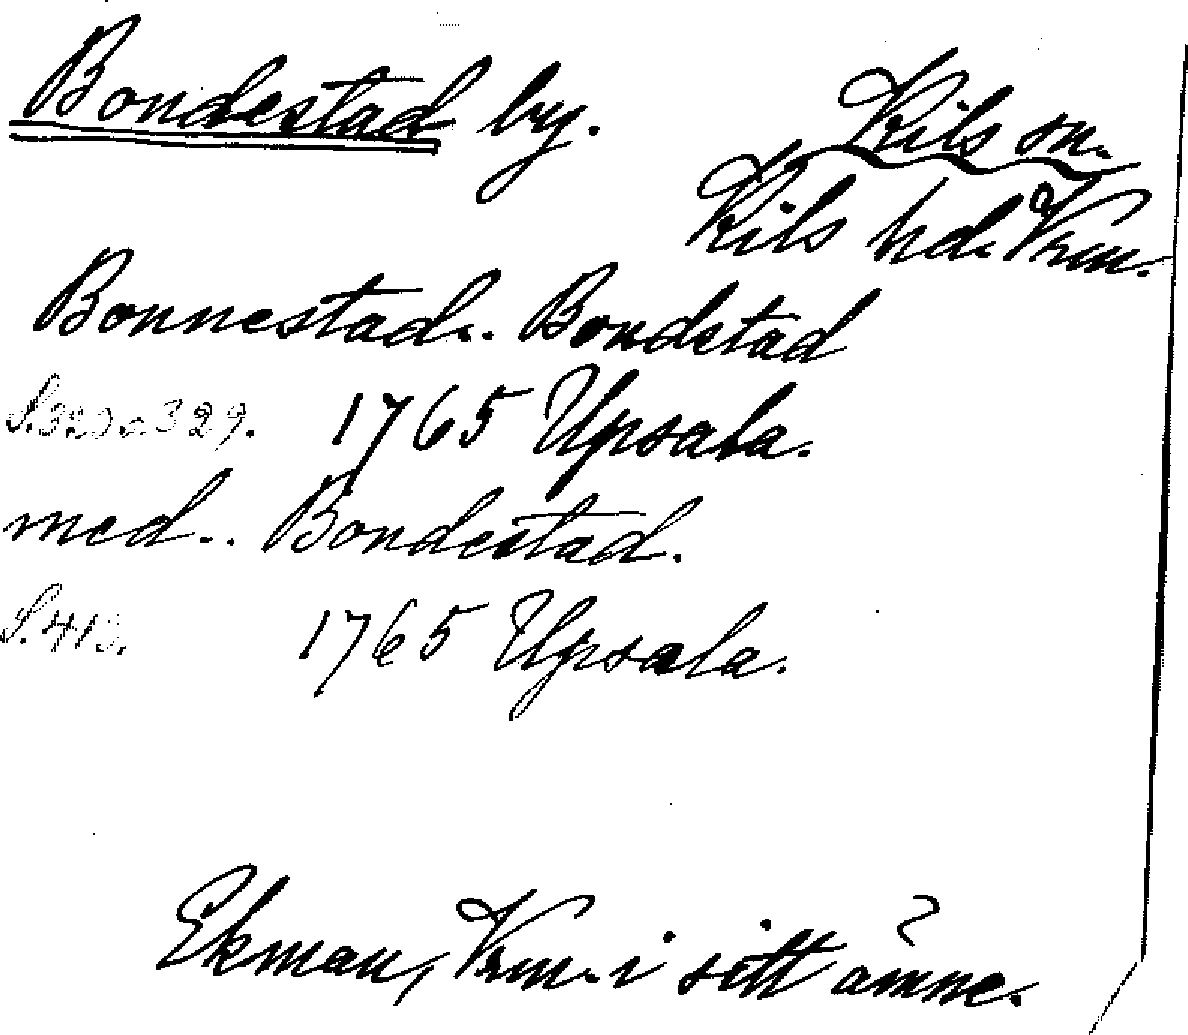 Bondestad by. Kils sn.
Kils hd. Vrm.
Bonnestad.. Bondstad
1765 Upsala.
med.. Bondestad.
S. 413. 1765 Upsala.
Ekman, Vrm. i sitt ämne.